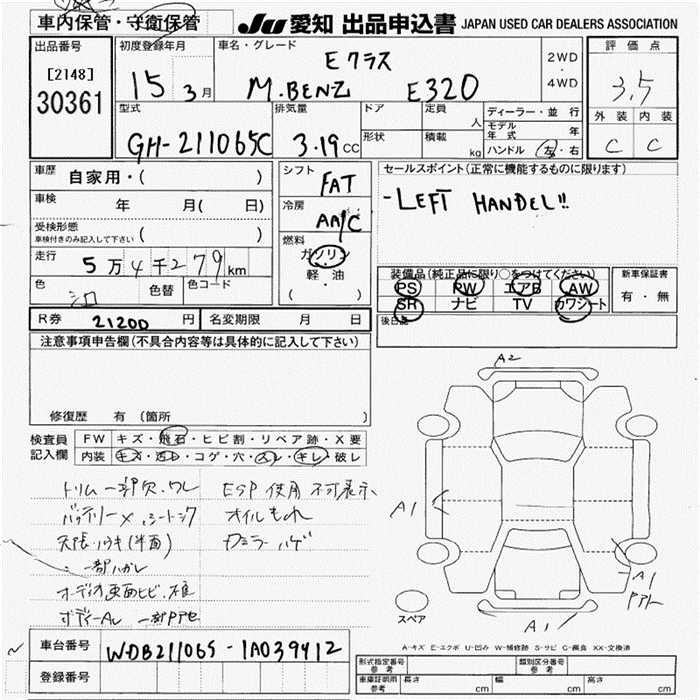 車内保管・守衛保管
JU 愛知 出品申込書 JAPAN USED CAR DEALERS ASSOCIATION
出品番号
[2148]
30361
初度登録年月
15 3月
車名・グレード
Eクラス
M.BENZ E320
2WD
・
4WD
評価点
3.5
外装 内装
C C
型式
GH-211065C
排気量
3.19cc
ドア
形状
定員 人
積載 kg
ディーラー・並行
モデル年式 年
ハンドル 左・右
車歴 自家用・( )
車検 年 月( 日)
受検形態
車検付きのみ記入して下さい ( )
走行 5万4千279km
色 シロ 色替 色コード
シフト FAT
冷房 AA/C
燃料
ガソリン
軽・油
( ・ )
セールスポイント(正常に機能するものに限ります)
-LEFT HANDEL!!
装備品(純正品に限り○をつけてください)
PS PW エアB AW
SR ナビ TV カワシート
新車保証書
有・無
後日品
R券 21200円 名変期限 月 日
注意事項申告欄(不具合内容等は具体的に記入して下さい)
修復歴 有(箇所 )
検査員記入欄
FW キズ・飛石・ヒビ割・リペア跡・X要
内装 キズ・汚れ・コゲ・穴・スレ・キレ・破レ
トリム一部欠.ワレ ESP使用不可表示
バッテリー× オイルもれ
一部ハガレ
A2
A1
A1
A1
スペア
A-キズ E-エクボ U-凹み W-補修跡 S-サビ C-腐食 XX-交換済
車台番号 WDB211065-1A039412
登録番号
型式指定番号 参考
類別区分番号 参考
車庫証明用 参考 長さ cm 幅 cm 高さ cm